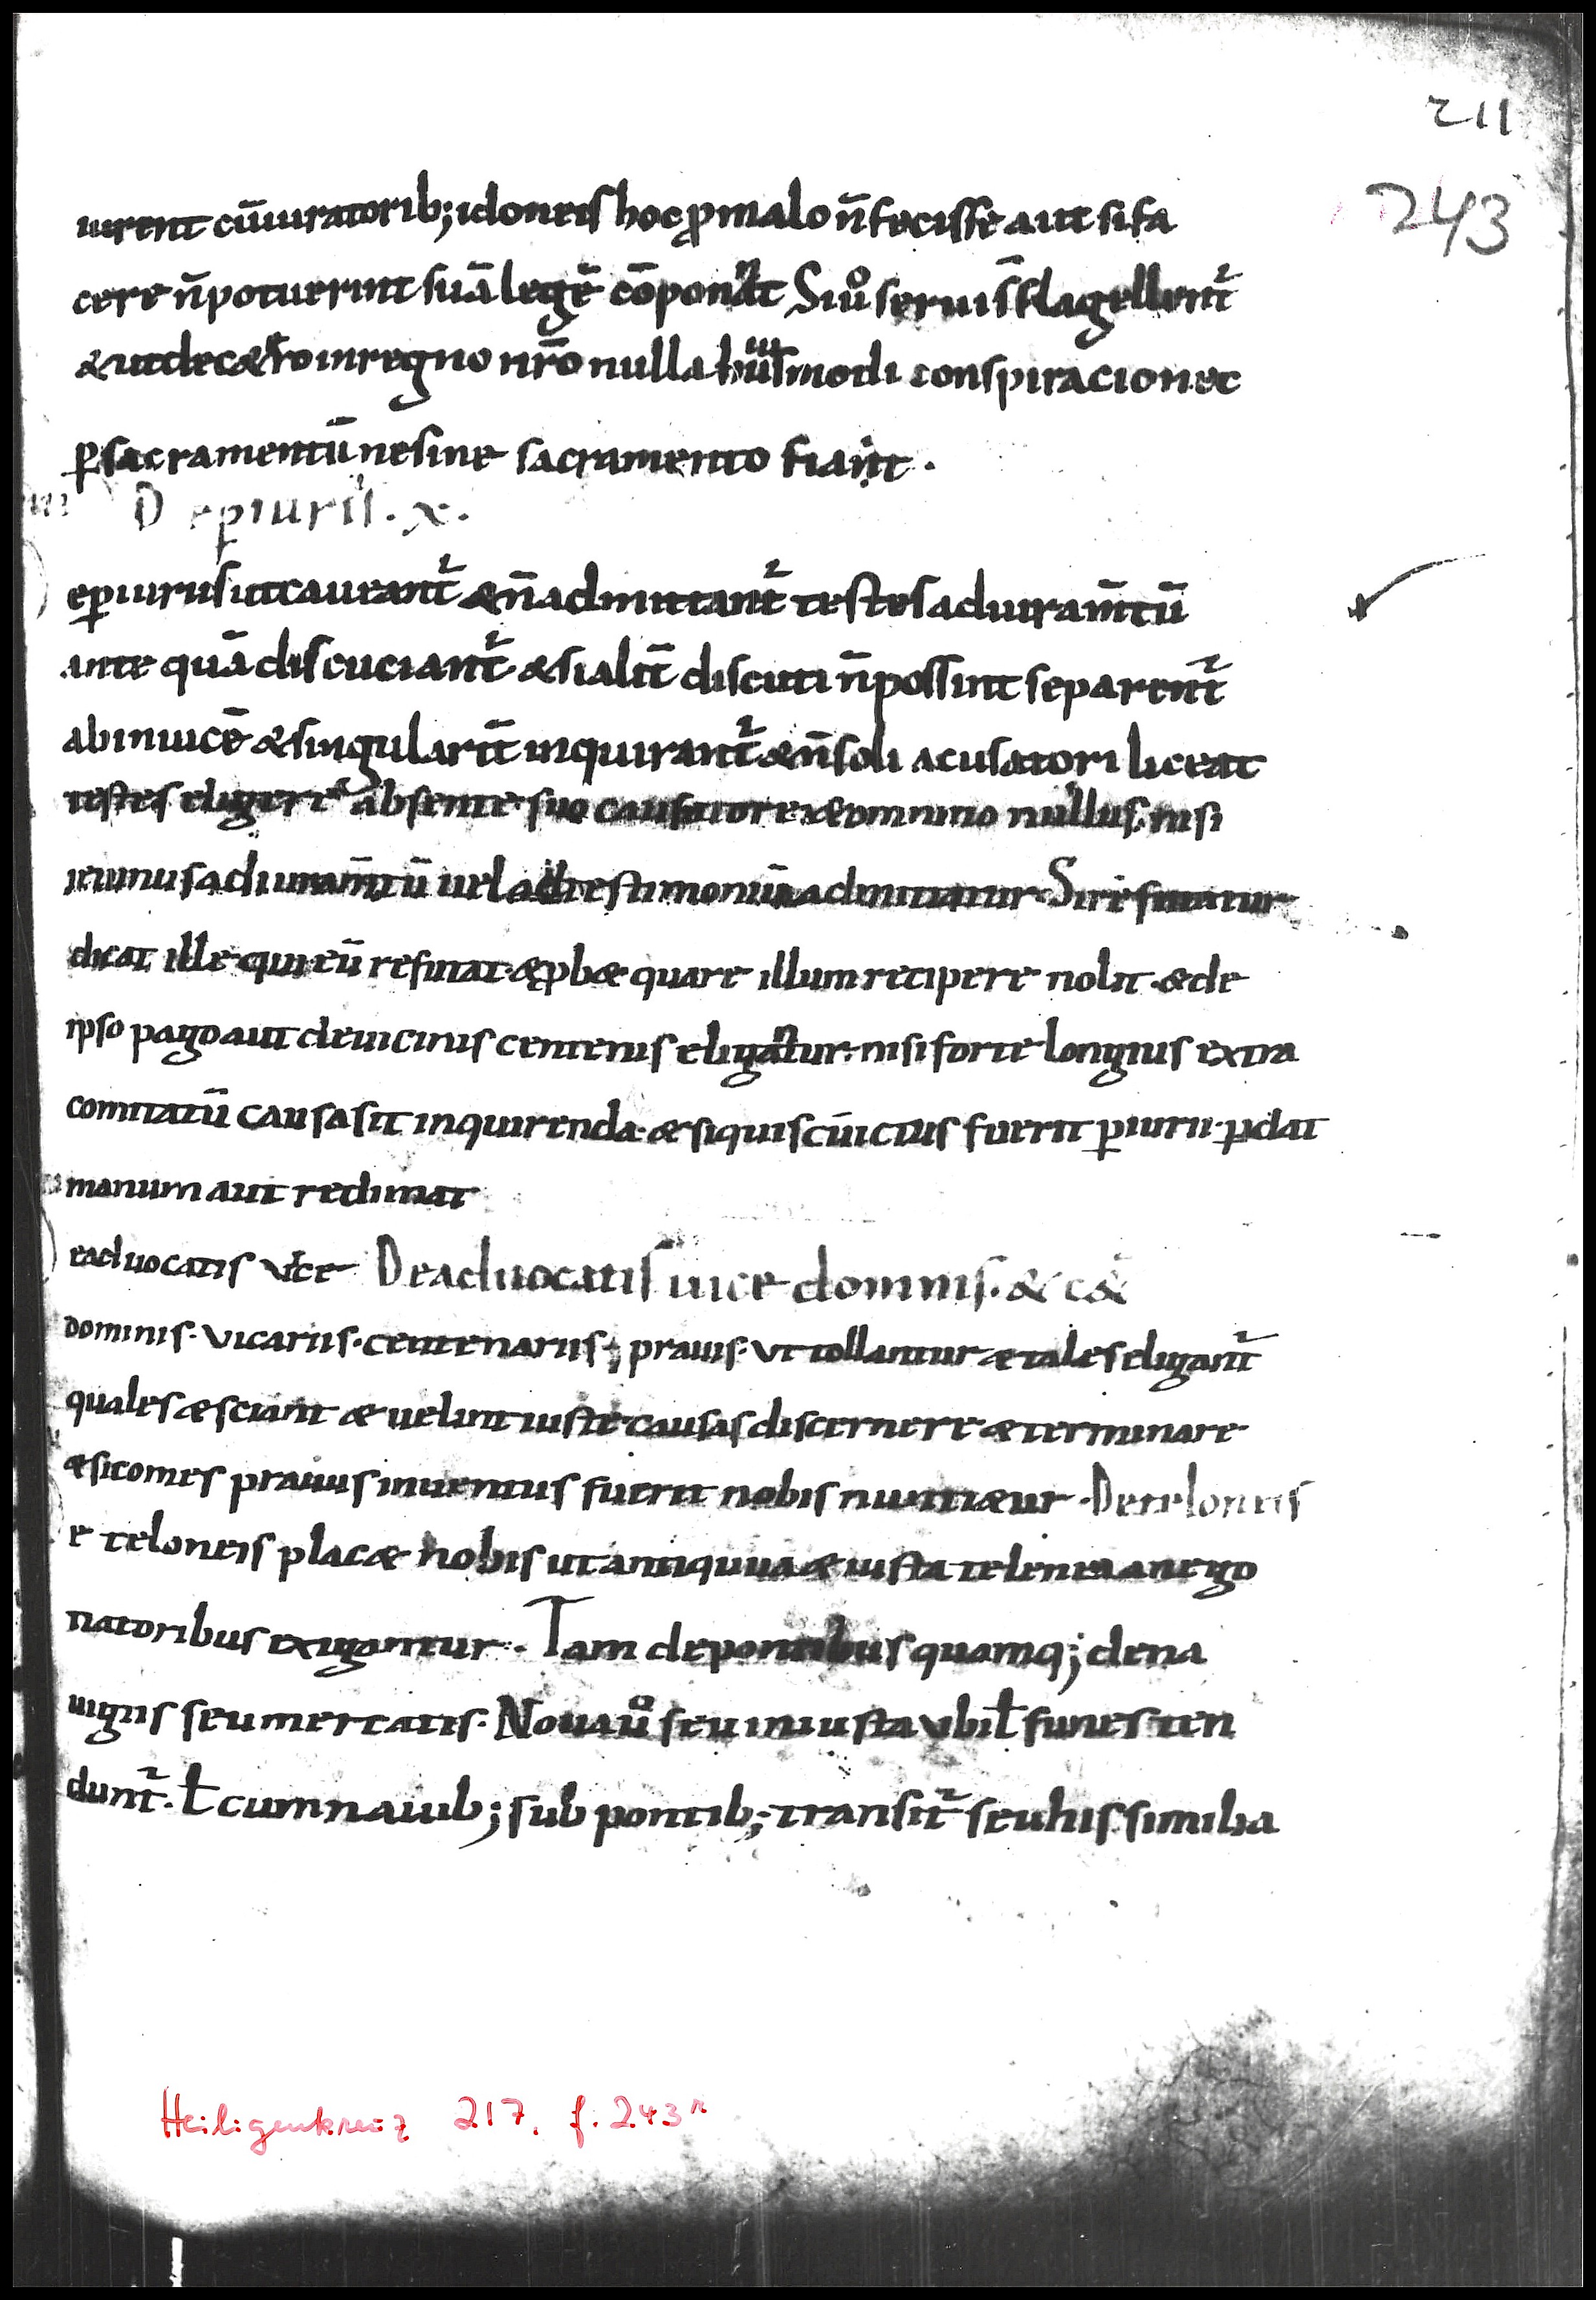 211
243
iurent cūiuratorib; idoneis hoc ꝓ malo n̄ fecisse aut si fa
cere n̄ potuerint suā legē cōponat Si uͦ serui s̄ flagellent᷑
& ut de cętero in regno nr̄o nulla huiusmodi conspiracio nec
ꝑ sacramentū ne sine sacramento fiant.
D e ꝑiuriis. x.
e ꝑiuriis ut caueant᷑ & n̄ admittant᷑ testes ad iuram̄tū
ante quā discuciant᷑ & si alit̄ discuti n̄ possint separent᷑
ab inuicē & singularit̄ inquirant᷑ & n̄ soli acusatori liceat
testes eligere absente suo causatore & omnino nullus nisi
ieiunus ad iuram̄tū uel ad testimoniū admittatur. Si refutatur
dicat ille qui eū refutat & ꝓb& quare illum recipere nolit. & de
ipso pago aut de uicinis centenis eligatur. nisi forte longius extra
comitatū causa sit inquirenda. & si quis cūictus fuerit ꝑiurii. ꝑdat
manum aut redimat
e aduocatis vice De aduocatis uice dominis. & c&
dominis. vicariis. centenariis; prauis. vt tollantur & tales eligant᷑
quales & sciant & uelint iuste causas discernere & terminare
& si comes prauus inuentus fuerit nobis nunti&ur. De teloneis
e teloneis plac& nobis ut antiqua & iusta telenea a nego
tiatoribus exigantur. Tam de pontibus quamq; de na
uigiis seu mercatis. Noua uͦ seu iniusta vbi ł funes ten
dunt᷑. ł cum nauib; sub pontib; transit᷑ seu his similia
Heiligenkreuz 217, f. 243r